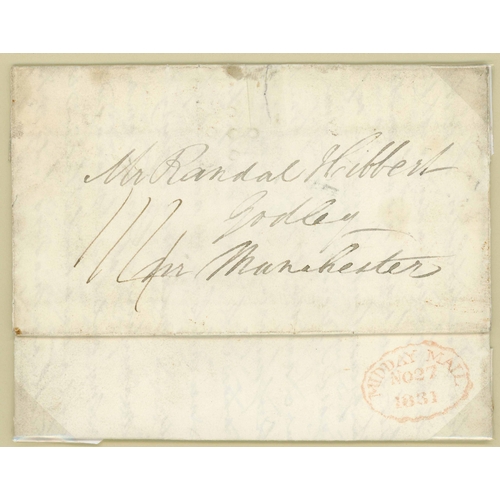 Mr Randal Hibbert
Godley
11
nr Manchester
MIDDAY MAIL
NO 27
1831